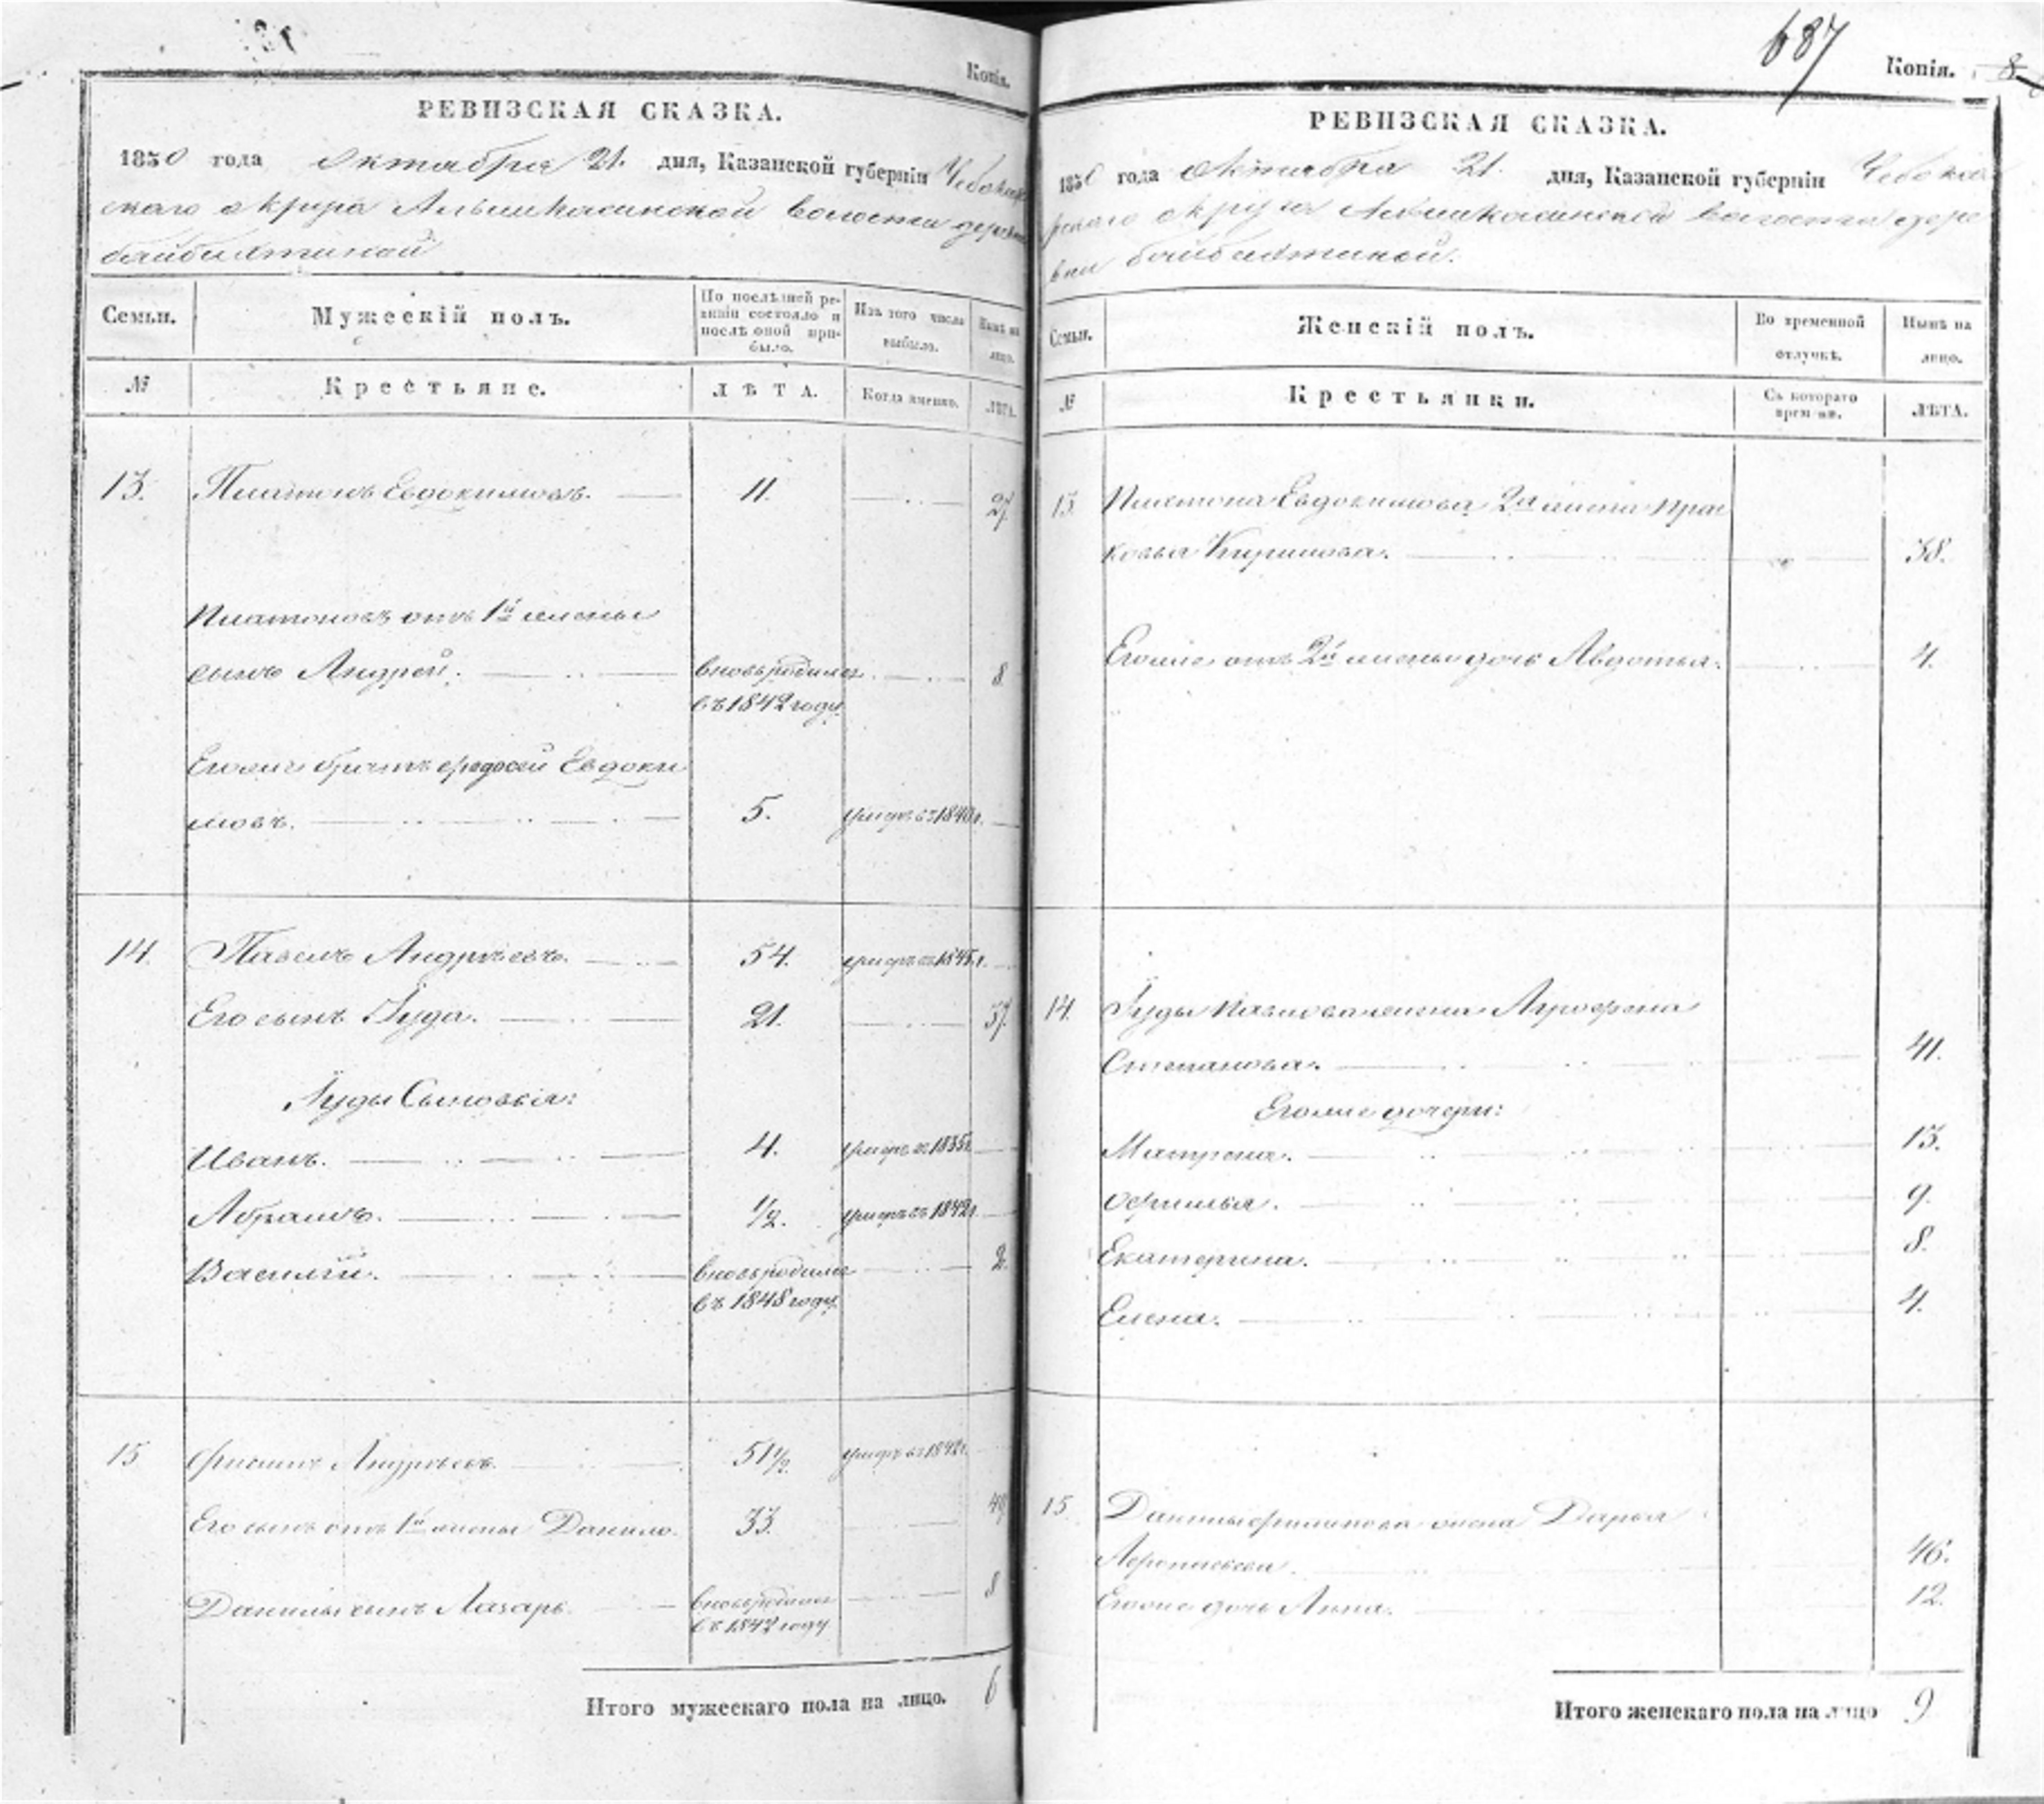 Копія.
РЕВИЗСКАЯ СКАЗКА.
1850 года Октября 21. дня, Казанской губерніи Чебокса
скаго округа Альменкасинской волости дерев
байбахтиной
Семьи. Мужескій полъ. По послѣдней ре-
визіи состояло и
послѣ оной при-
было. Изъ того числа
выбыло. Нынѣ на
лицо.
№ Крестьяне. ЛѢТА. Когда именно. ЛѢТА.
13. Платонъ Евдокимовъ. 11. 27.
Платоновъ отъ 1й жены
сынъ Андрей. вновь родился 8
въ 1842 году.
Егоже братъ Федосей Евдоки
мовъ. 5. умеръ въ 1840 г.
14. Павелъ Андреевъ. 54. умеръ въ 1845 г.
Его сынъ Іуда. 21. 37.
Іуды Сыновья:
Иванъ. 4. умеръ въ 1835 г.
Абрамъ. 1/2. умеръ въ 1842 г.
Василий. вновь родился 2.
въ 1848 году.
15 Филипъ Андреевъ. 51 1/2. умеръ въ 1842 г.
Его сынъ отъ 1й жены Данило. 33. 49
Данилы сынъ Лазарь. вновь родился 8
въ 1842 году
Итого мужескаго пола на лицо. 6
687
Копія. 8
РЕВИЗСКАЯ СКАЗКА.
1850 года Октября 21. дня, Казанской губерніи Чебокса
рскаго округа Альменкасинской волости дере
вни байбахтиной.
Семьи. Женскій полъ. Во временной
отлучкѣ. Нынѣ на
лицо.
№ Крестьянки. Съ котораго
времени. ЛѢТА.
13. Платона Евдокимова 2я жена Прас
ковья Кирилова. 38.
Егоже отъ 2й жены дочь Авдотья. 4.
14. Іуды Павлова жена Агрофена
Степанова. 41.
Егоже дочери:
Матрена. 13.
Офимья. 9.
Екатерина. 8.
Елена. 4.
15. Данилы Филипова жена Дарья
46.
Егоже дочь Анна. 12.
Итого женскаго пола на лицо 9